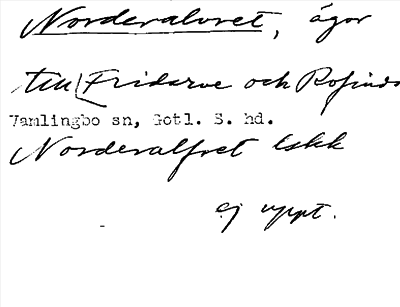 Norderalvret, ägor
till Fridarve och Rofinds
Vamlingbo sn, Gotl. S. hd.
Norderalfret lskk
ej uppt.